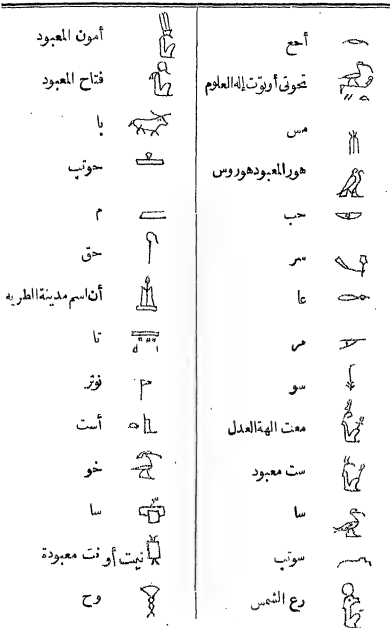 أحع
تحوتى أو توت إله العلوم
مس
هور المعبود هوروس
حب
سر
عا
مر
سو
معت الهة العدل
ست معبود
سا
سوتب
رع الشمس
أمون المعبود
فتاح المعبود
با
حوتب
م
حق
أن اسم مدينة المطريه
تا
نوتر
أست
خو
سا
نيت أو نت معبودة
وح